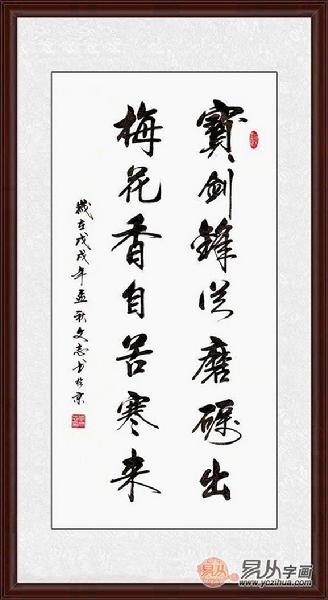 寶劍鋒從磨礪出
梅花香自苦寒来
歲在戊戌年孟秋文志书於京
易从字画
www.yczihua.com